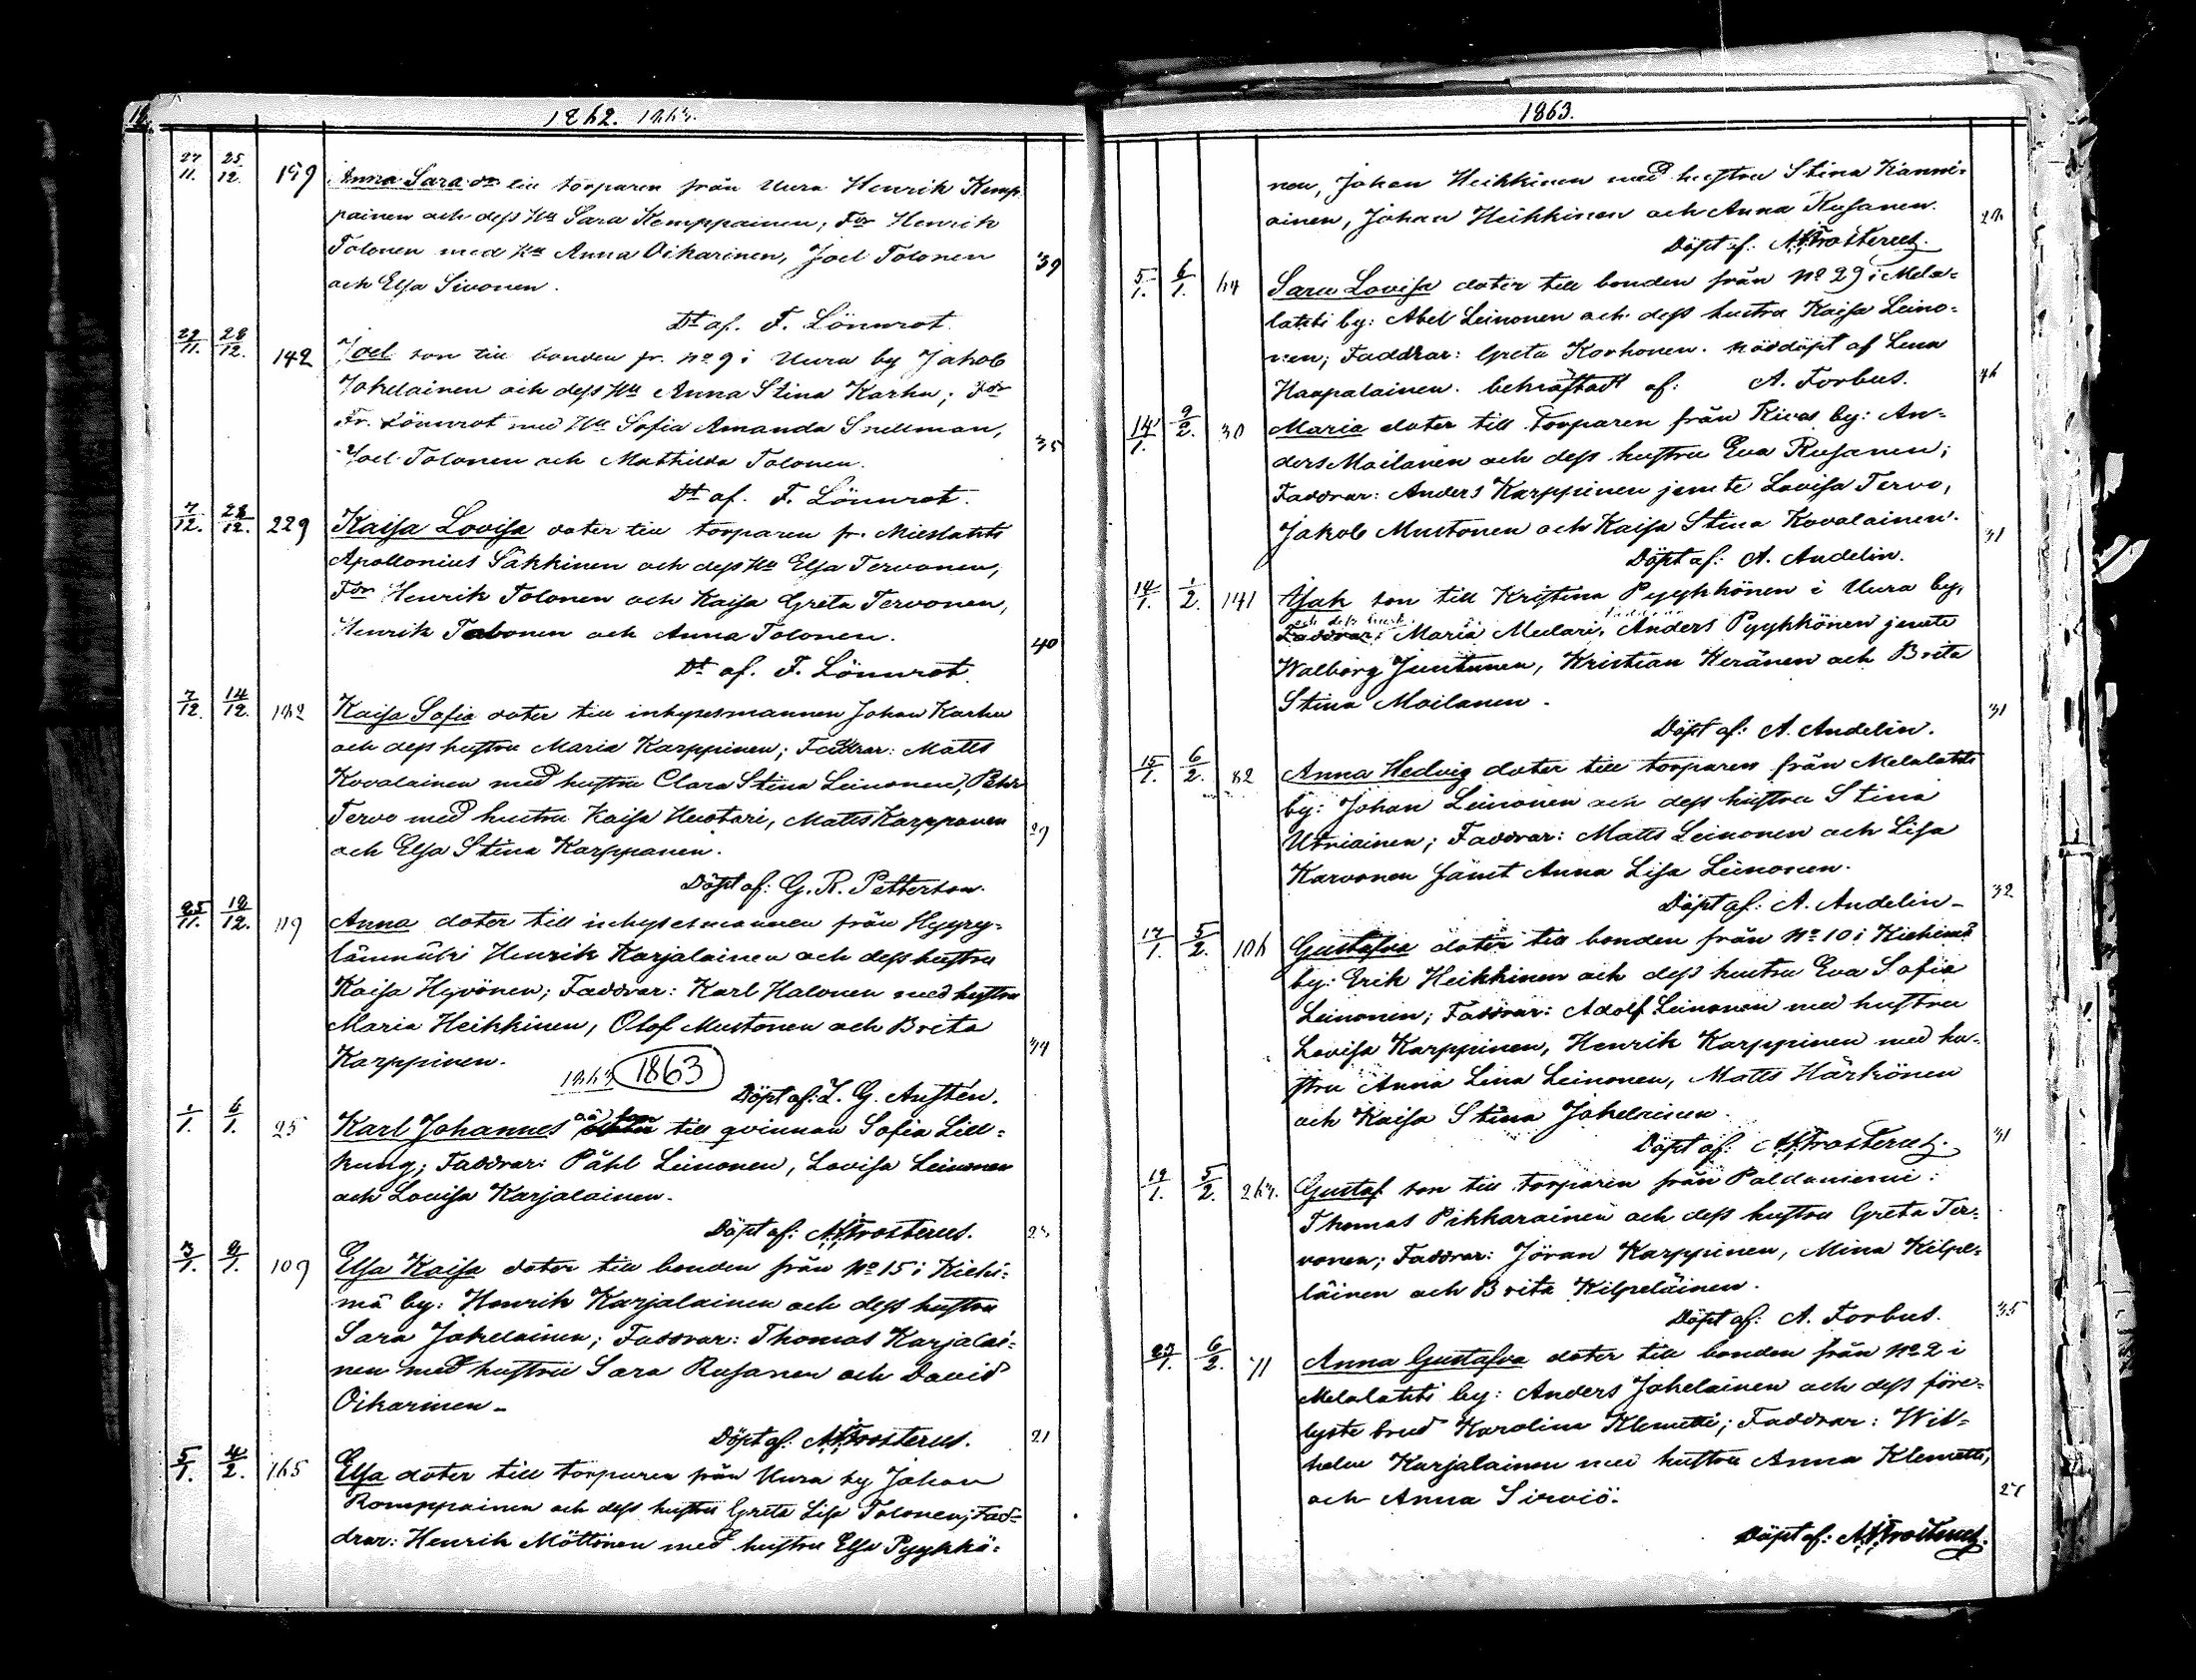 12.
1862. 1863.
27/11. 25/12. 159 Anna Sara dr till torparen från Uura Henrik Kemp-
painen och dess Hu Sara Kemppainen; Fdr Henrik
Tolonen med Hu Anna Oikarinen, Joel Tolonen
och Elsa Sivonen. 39
Dt af. F. Lönnrot.
22/11. 28/12. 142 Joel son till bonden fr. No 9 i Uura by Jakob
Jokelainen och dess Hu Anna Stina Karhu; Fdr
Fr. Lönnrot med Hu Sofia Amanda Snellman,
Joel Tolonen och Mathilda Tolonen. 35
Dt af. F. Lönnrot.
7/12. 28/12. 229 Kaisa Lovisa doter till torparen fr. Mieslahti
Apollonius Säkkinen och dess Hu Elsa Tervonen,
Fdr Henrik Tolonen och Kaisa Greta Tervonen,
Henrik Tolonen och Anna Tolonen. 40
Dt af. F. Lönnrot.
7/12. 14/12. 182 Kaisa Sofia doter till inhysesmannen Johan Karhu
och dess hustru Maria Karppinen; Faddrar: Matts
Kovalainen med hustru Clara Stina Leinonen, Petter
Tervo med hustru Kaisa Huotari, Matts Karppanen
och Elsa Stina Karppanen. 29
Döpt af: G. R. Petterson.
25/11. 12/12. 119 Anna doter till inhysesmannen från Hyyry-
länmäki Henrik Karjalainen och dess hustru
Kaisa Hyvönen; Faddrar: Karl Halonen med hustru
Maria Heikkinen, Olof Mustonen och Brita
Karppinen. 34
1863 1863
Döpt af: L. G. Austén.
1/1. 6/1. 25 Karl Johannes oä son till qvinnan Sofia Lill-
kung; Faddrar: Påhl Leinonen, Lovisa Leinonen
och Lovisa Karjalainen.
Döpt af: Frosterus. 23
3/1. 9/1. 109 Elsa Kaisa doter till bonden från No 15 i Kiehi-
mä by: Henrik Karjalainen och dess hustru
Sara Jokelainen; Faddrar: Thomas Karjalai-
nen med hustru Sara Rusanen och David
Oikarinen.
Döpt af: Frosterus. 21
5/1. 4/2. 165 Elsa doter till torparen från Uura by Johan
Romppainen och dess hustru Greta Lisa Tolonen; Fad-
drar: Henrik Möttönen med hustru Elsa Pyykkö-
1863.
nen, Johan Heikkinen med hustru Stina Känni-
ainen, Johan Heikkinen och Anna Rusanen.
Döpt af: Frosterus.
5/1. 6/1. 64 Sara Lovisa doter till bonden från No 29 i Mela-
lahti by: Abel Leinonen och dess hustru Kaisa Leino-
nen; Faddrar: Greta Korhonen. nöddöpt af Lena
Haapalainen. bekräftadt af: A. Forbus. 46
14/1. 9/2. 30 Maria doter till Torparen från Kivas by: An-
ders Moilanen och dess hustru Eva Rusanen;
Faddrar: Anders Karppinen jemte Lovisa Tervo,
Jakob Mustonen och Kaisa Stina Kovalainen. 31
Döpt af: A. Andelin.
14/1. 1/2. 141 Isak son till Kristian Pyykkönen i Uura by,
och dess hust. Faddrar:
Faddrar: Maria Meelari, Anders Pyykkönen jemte
Walborg Juntunen, Kristian Keränen och Brita
Stina Moilanen. 31
Döpt af: A. Andelin.
15/1. 6/2. 82 Anna Hedvig doter till torparen från Melalahti
by: Johan Leinonen och dess hustru Stina
Utriainen; Faddrar: Matts Leinonen och Lisa
Karvonen jämt Anna Lisa Leinonen.
Döpt af: A. Andelin. 32
17/1. 5/2. 106 Gustafva doter till bonden från No 10 i Kiehimä
by: Erik Heikkinen och dess hustru Eva Sofia
Leinonen; Faddrar: Adolf Leinonen med hustru
Lovisa Karppinen, Henrik Karppinen med hu-
stru Anna Lina Leinonen, Matts Härkönen
och Kaisa Stina Jokelainen.
Döpt af: Frosterus. 31
19/1. 5/2. Gustaf son till torparen från Paldaniemi:
Thomas Pikkarainen och dess hustru Greta Ter-
vonen; Faddrar: Jöran Karppinen, Mina Kilpe-
läinen och Brita Kilpeläinen.
Döpt af: A. Forbus. 35
6/2. 71 Anna Gustafva doter till bonden från No 2 i
Melalahti by: Anders Jokelainen och dess före-
lyste brud Karolina Klemetti; Faddrar: Wil-
helm Karjalainen med hustru Anna Klemetti,
och Anna Sirviö.
Döpt af: Frosterus.